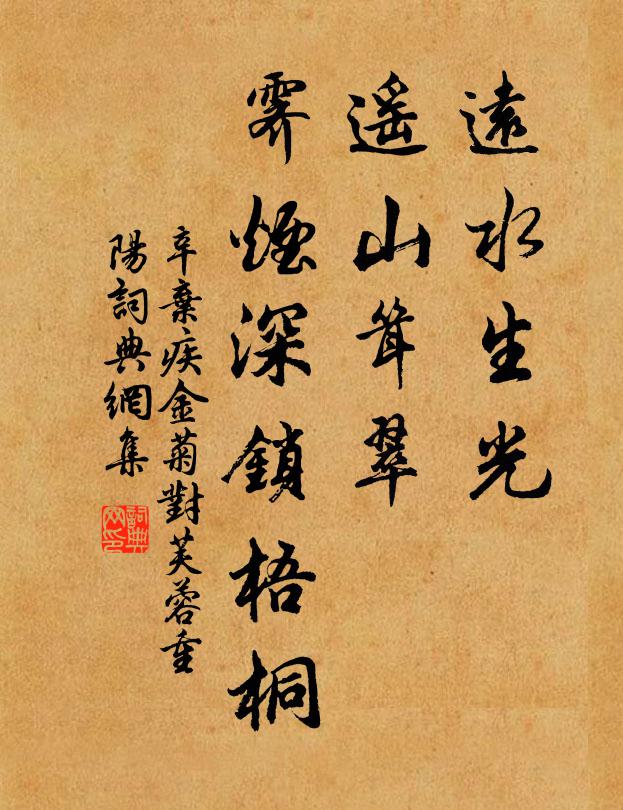 遠水生光
遥山聳翠
霽煙深鎖梧桐
辛棄疾金菊對芙蓉重
陽詞典網集
詞典
网印